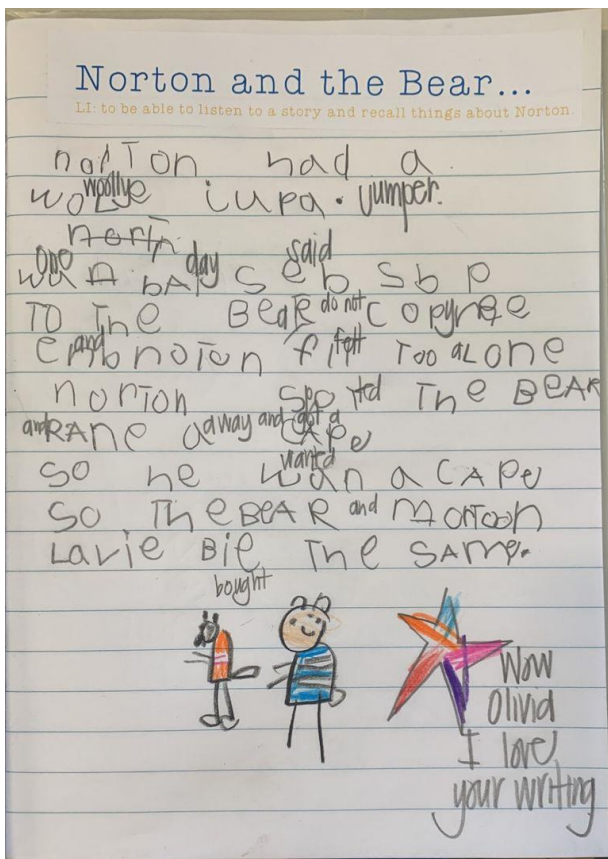 Norton and the Bear...
LI: to be able to listen to a story and recall things about Norton.
norTon had a
woollye
wole iupa. jumper.
norTn
one day said
wan bay seb sbp
To The BeaR do not copyree
and felt
noTon Too aLone
norTon spo ted The BEAR
and RAne a away and got a cApe
wanted
so he wan a CApe
So The BEAR and morToon
Lavie Bie The SAme.
bought
Wow
Olivia
I love
your writing